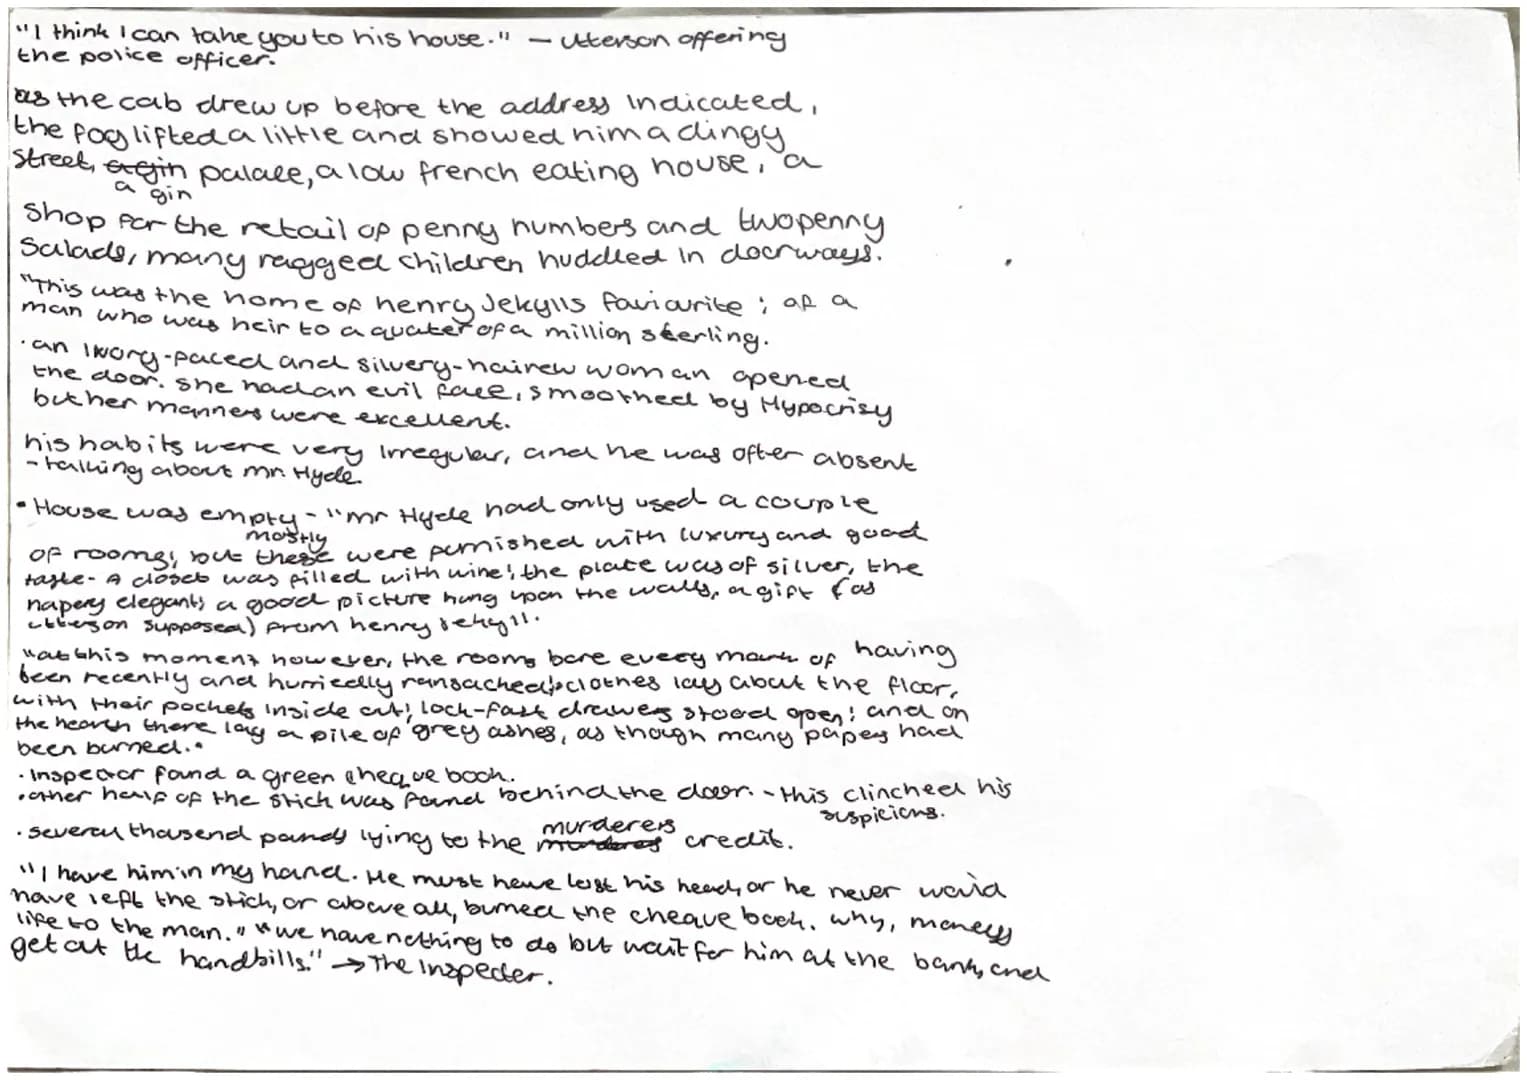 "I think I can take you to his house." - Utterson offering
the police officer.
as the cab drew up before the address indicated,
the fog lifted a little and showed him a dingy
street, a gin palace, a low french eating house, a
shop for the retail of penny numbers and twopenny
salads, many ragged children huddled in doorways.
"This was the home of henry Jekylls faviourite ; of a
man who was heir to a quater of a million sterling.
· an ivory-faced and silvery-hairew woman opened
the door. she had an evil face, smoothed by Hypocrisy
but her manners were excellent.
his habits were very irregular, and he was often absent
- talking about mr. Hyde.
• House was mostly empty - "mr Hyde had only used a couple
of rooms; but these were furnished with luxury and good
taste - A closet was filled with wine; the plate was of silver, the
napery elegant; a good picture hung upon the walls, a gift (as
utterson supposed) from henry Jekyll.
"at this moment however, the rooms bore every mark of having
been recently and hurriedly ransacked; clothes lay about the floor,
with their pockets inside out; lock-fast drawers stood open; and on
the hearth there lay a pile of grey ashes, as though many papers had
been burned."
· Inspector found a green cheque book.
· other half of the stick was found behind the door. - this clinched his
suspicions.
· several thousend pounds lying to the murderers credit.
"I have him in my hand. He must have lost his head, or he never would
have left the stick, or above all, burned the cheque book. why, moneys
life to the man." "we have nothing to do but wait for him at the bank, and
get out the handbills." → The Inspecter.